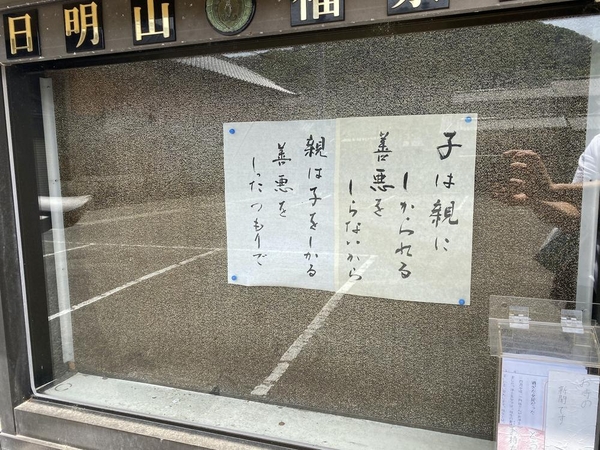 日明山
福
子は親に
しかられる
善悪を
しらないから
親は子をしかる
善悪を
しったつもりで
お寺の
新聞です